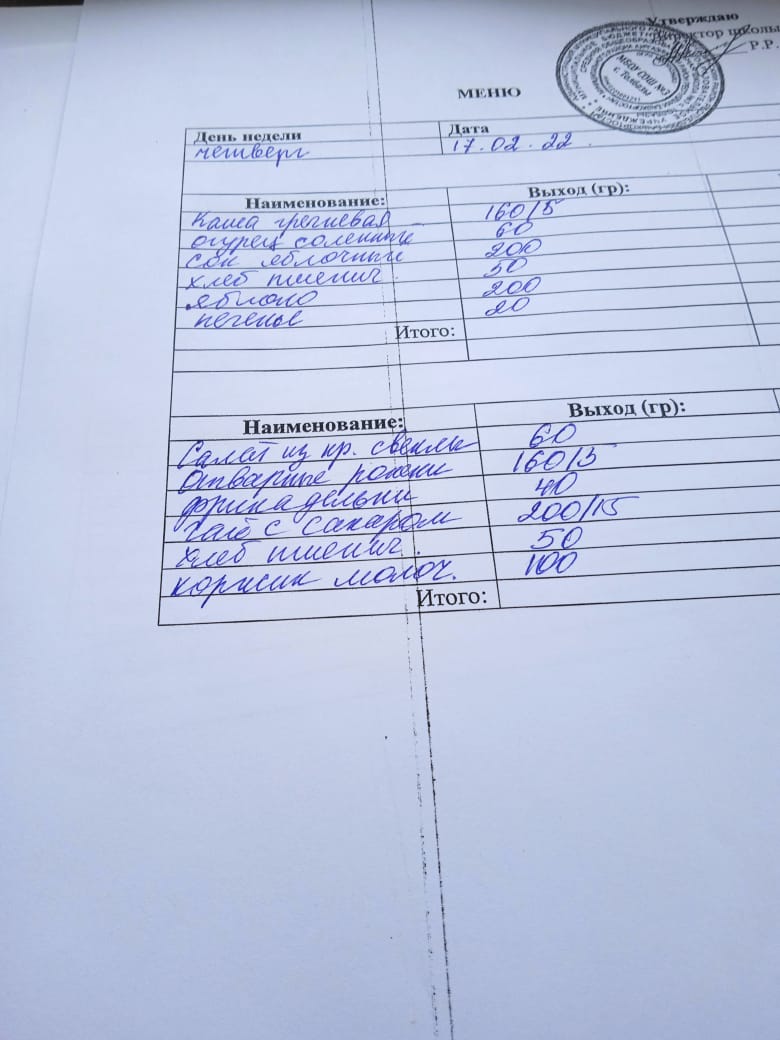 Утверждаю
Директор школы
Р.Р.
МБОУ СОШ №3
с. Толбазы
МЕНЮ
День недели Дата
четверг 17.02.22.
Наименование: Выход (гр):
Каша гречневая 160/5
огурец соленный 60
сок яблочный 200
хлеб пшенич. 50
яблоко 200
печенье 20
Итого:
Наименование: Выход (гр):
Салат из кр. свеклы 60
Отварные рожки 160/5
фрикадельки 40
чай с сахаром 200/15
хлеб пшенич. 50
коржик молоч. 100
Итого: